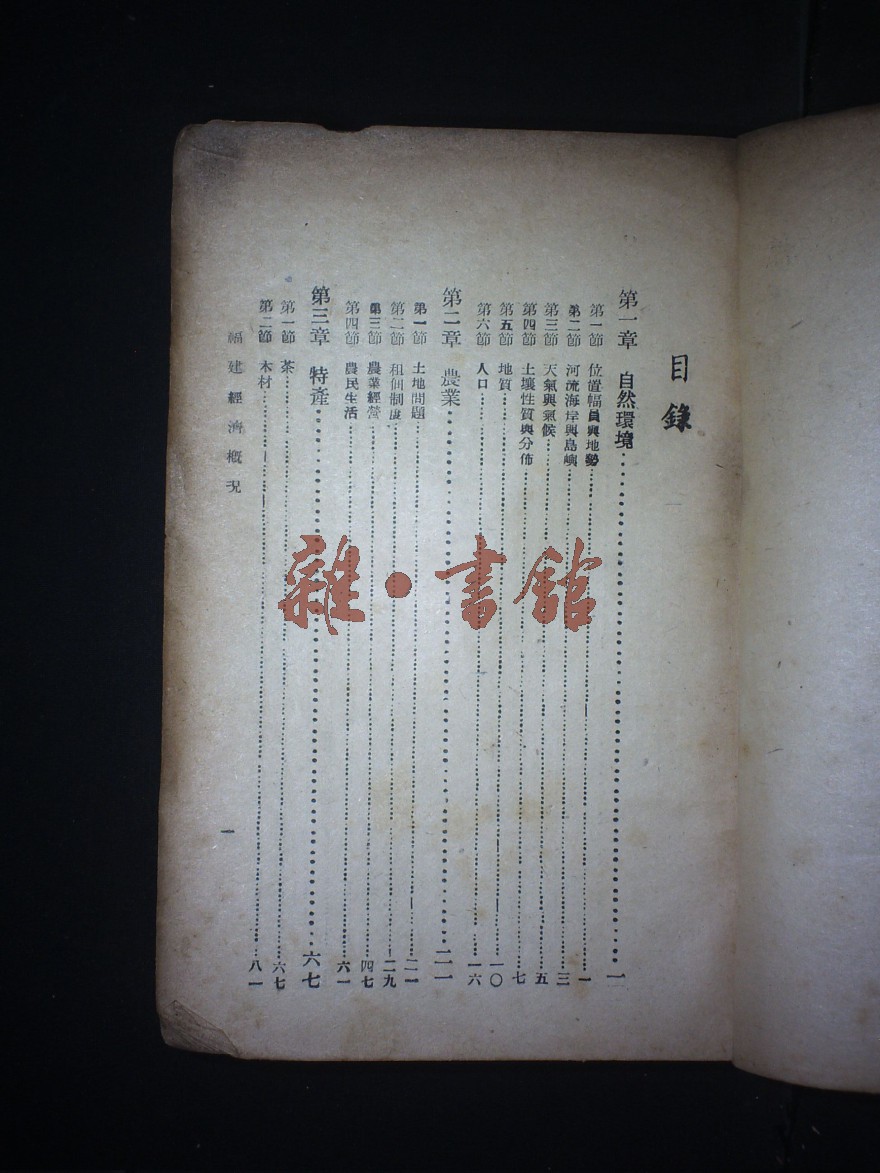 目錄
第一章 自然環境……一
第一節 位置幅員與地勢……一
第二節 河流海岸與島嶼……三
第三節 天氣與氣候……五
第四節 土壤性質與分佈……七
第五節 地質……一〇
第六節 人口……一六
第二章 農業……二一
第一節 土地問題……二一
第二節 租佃制度……二九
第三節 農業經營……四七
第四節 農民生活……六一
第三章 特產……六七
第一節 茶……六七
第二節 木材……八一
福建經濟概況
一
雜·書館